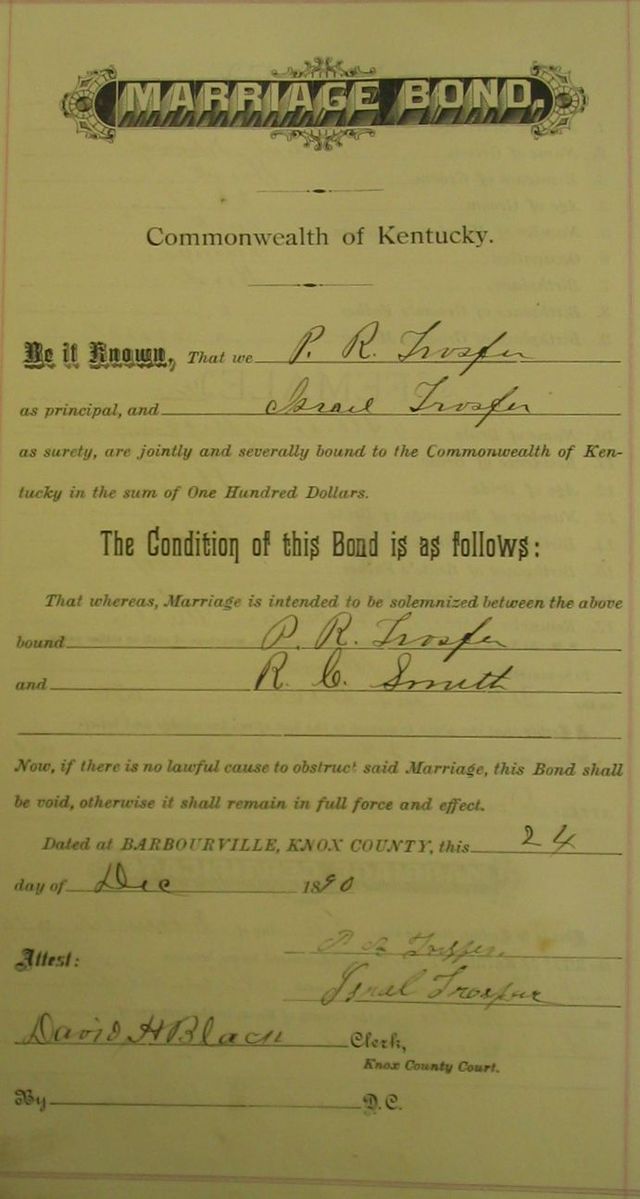 MARRIAGE BOND.
Commonwealth of Kentucky.
Be it Known, That we P. R. Trosper
as principal, and Israel Trosper
as surety, are jointly and severally bound to the Commonwealth of Ken-
tucky in the sum of One Hundred Dollars.
The Condition of this Bond is as follows:
That whereas, Marriage is intended to be solemnized between the above
bound P. R. Trosper
and R. C. Smith
Now, if there is no lawful cause to obstruct said Marriage, this Bond shall
be void, otherwise it shall remain in full force and effect.
Dated at BARBOURVILLE, KNOX COUNTY, this 24
day of Dec 1890
Attest: P R Trosper
Isral Trosper
David H Black Clerk,
Knox County Court.
By D.C.